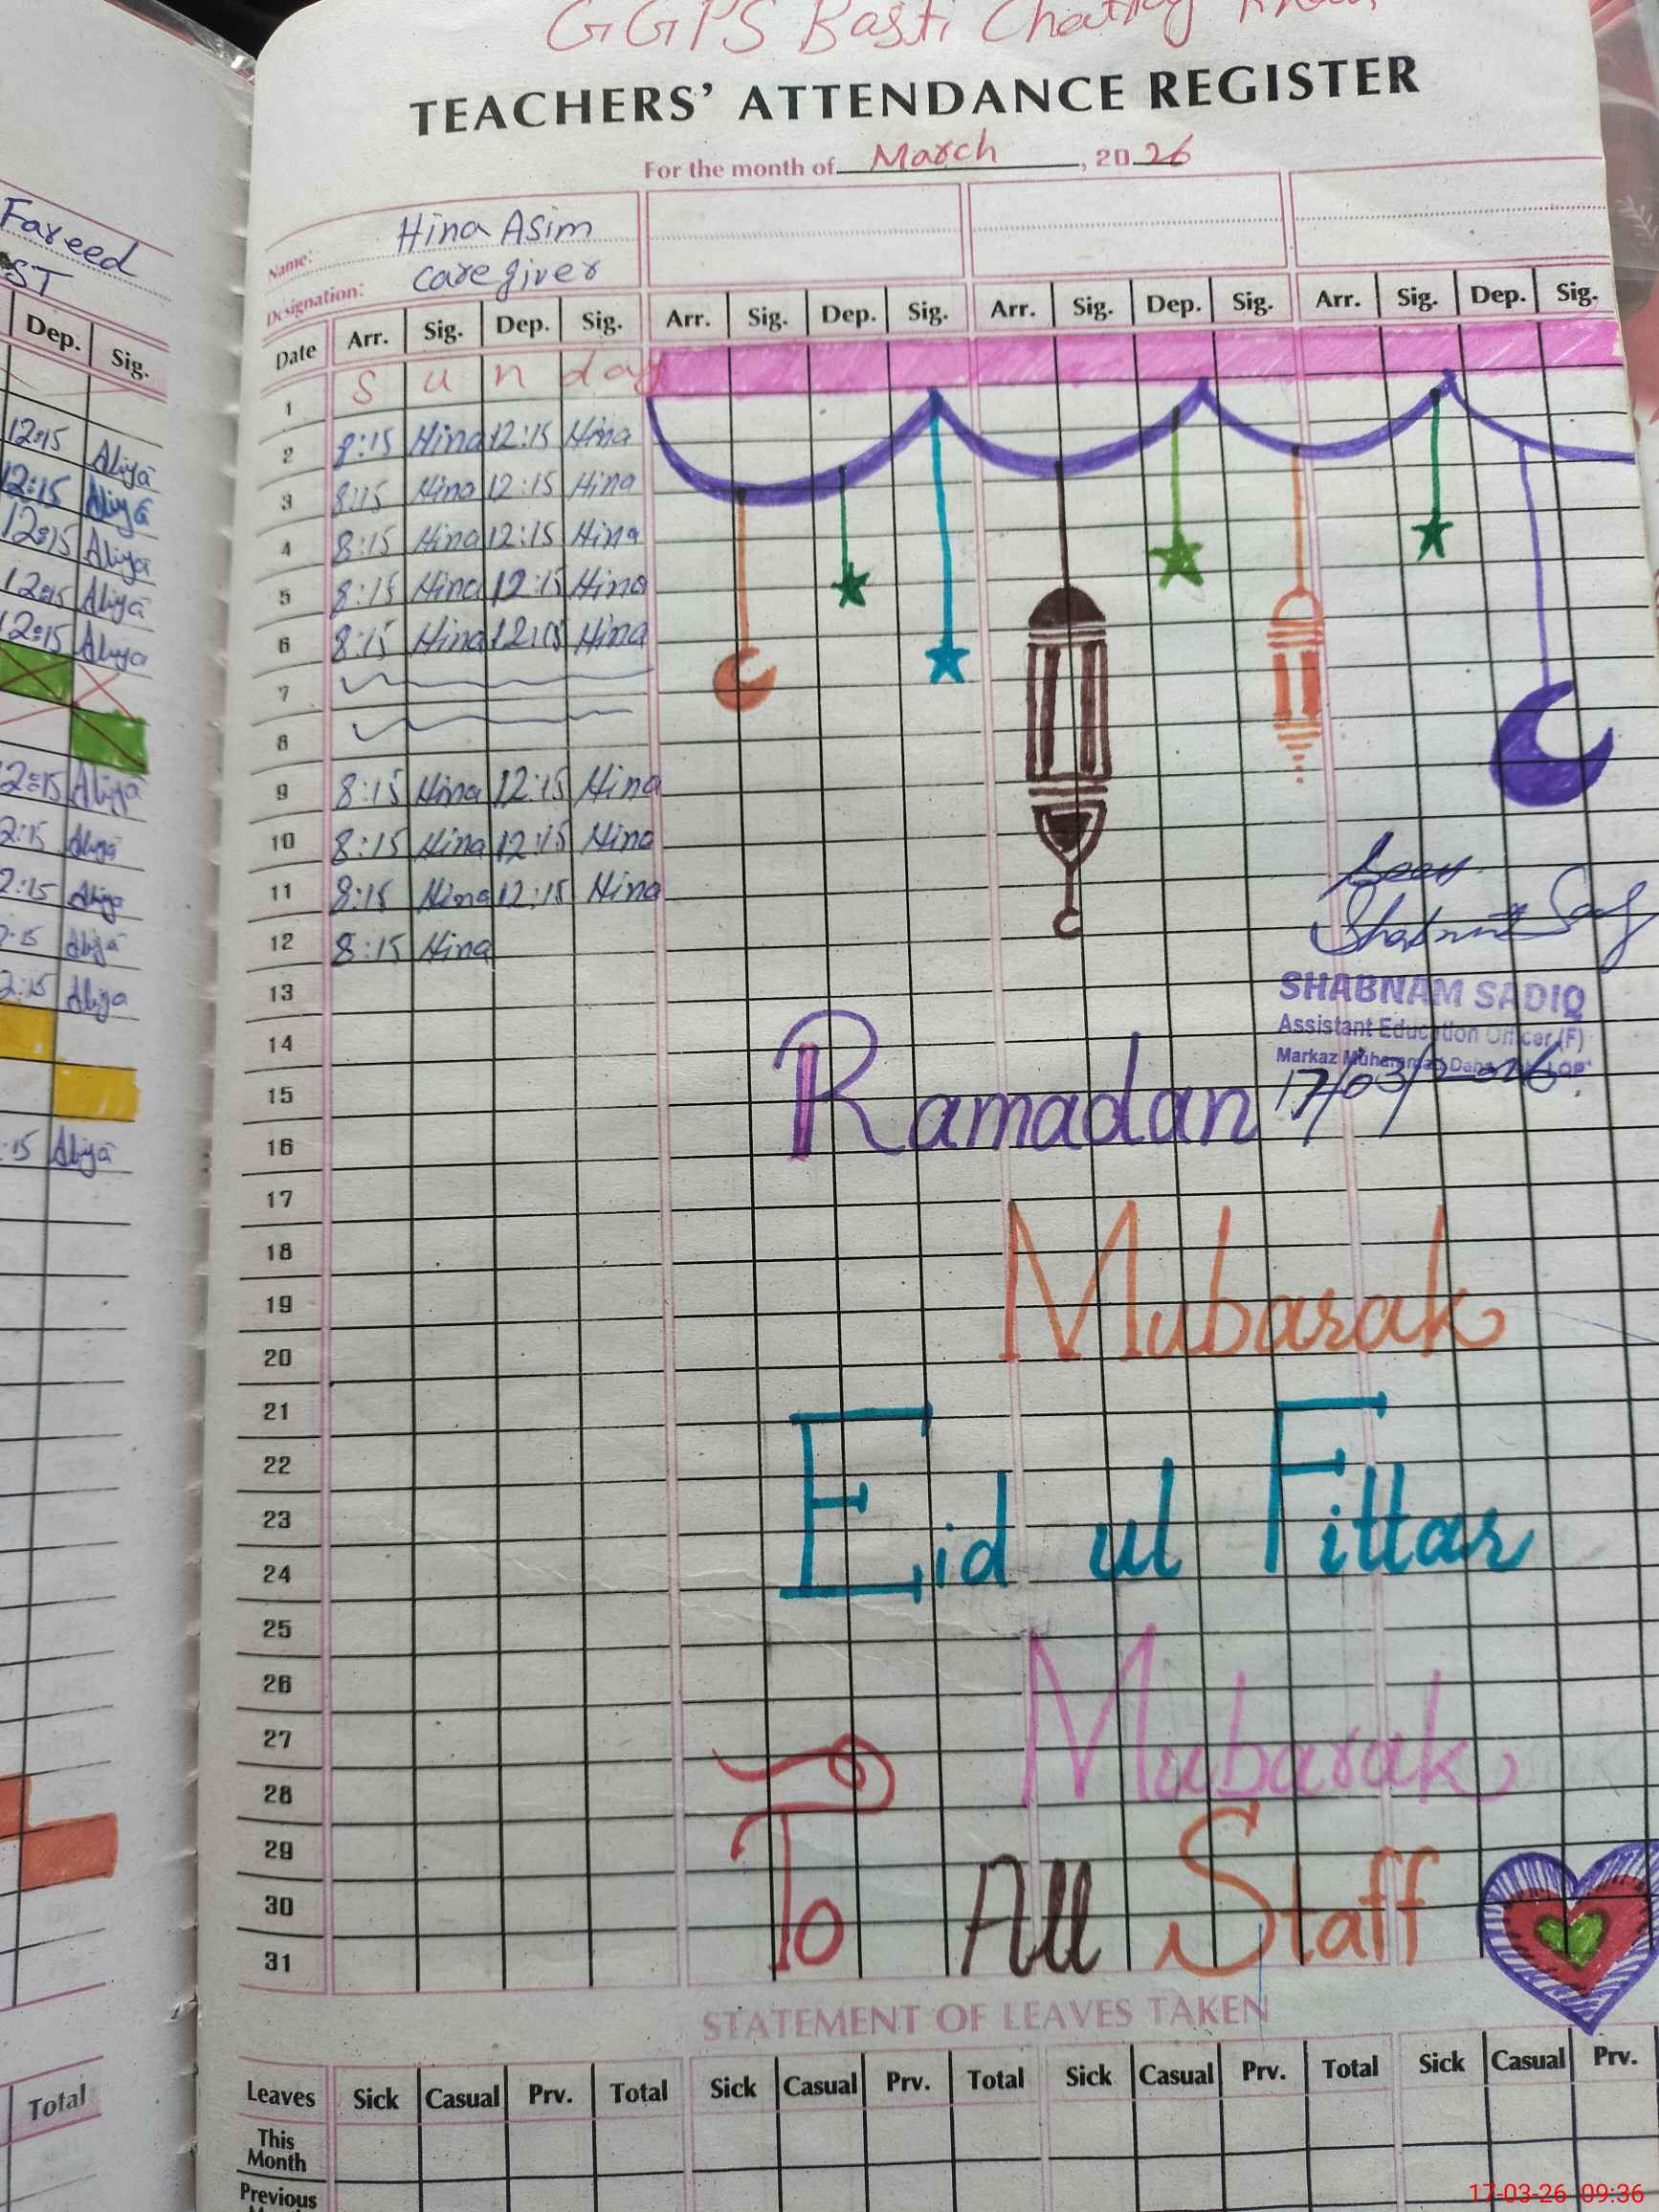 GGPS Basti
TEACHERS' ATTENDANCE REGISTER
For the month of March, 2026
Name: Hina Asim
Designation: Caregiver
Date Arr. Sig. Dep. Sig. Arr. Sig. Dep. Sig. Arr. Sig. Dep. Sig. Arr. Sig. Dep. Sig.
1 Sunday
2 8:15 Hina 12:15 Hina
3 8:15 Hina 12:15 Hina
4 8:15 Hina 12:15 Hina
5 8:15 Hina 12:15 Hina
6 8:15 Hina Hina
7
8
9 8:15 Hina 12:15 Hina
10 8:15 Hina 12:15 Hina
11 8:15 Hina 12:15 Hina
12 8:15 Hina
13
14
15
16
17
18
19
20
21
22
23
24
25
26
27
28
29
30
31
SHABNAM SADIQ
Assistant Education Officer (F)
Markaz Muhammad
17/03/2026
Ramadan
Mubarak
Eid ul Fittar
Mubarak
To All Staff
STATEMENT OF LEAVES TAKEN
Leaves Sick Casual Prv. Total Sick Casual Prv. Total Sick Casual Prv. Total Sick Casual Prv.
This Month
Previous
Fareed
ST
Dep. Sig.
12:15 Aliya
12:15 Aliya
12:15 Aliya
12:15 Aliya
12:15 Aliya
12:15 Aliya
2:15 Aliya
2:15 Aliya
Aliya
2:15 Aliya
:15 Aliya
Total
17-03-26 09:36